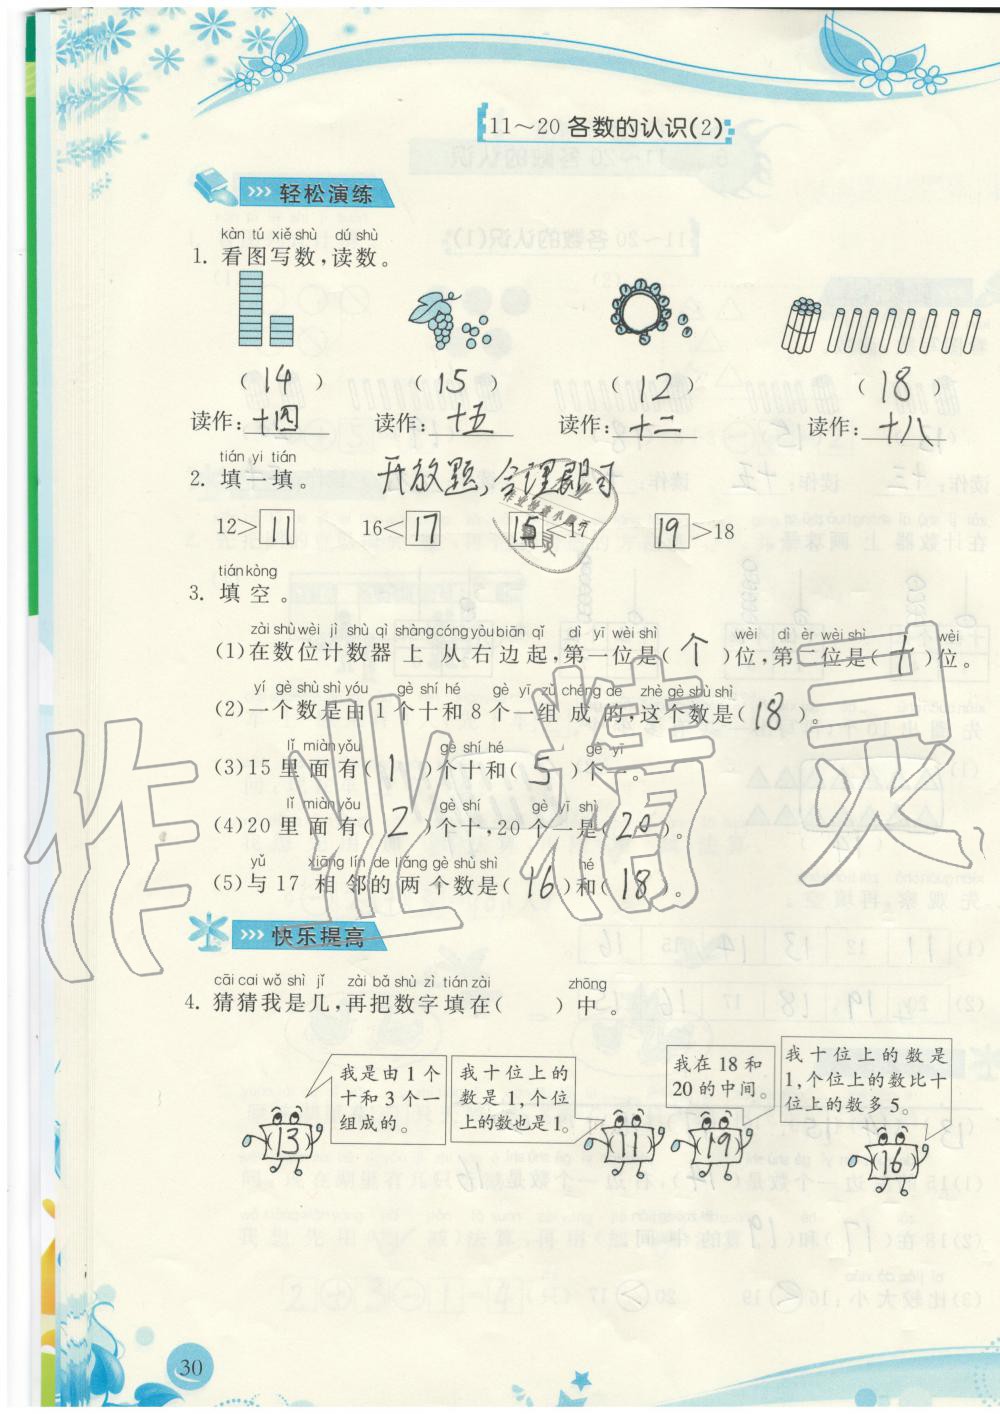 11～20 各数的认识(2)
>>> 轻松演练
kàn tú xiě shù dú shù
1. 看图写数,读数。
( 14 ) ( 15 ) ( 12 ) ( 18 )
读作: 十四 读作: 十五 读作: 十二 读作: 十八
tián yi tián
2. 填一填。 开放题,合理即可
12> 11 16< 17 15 <17 19 >18
tián kòng
3. 填空。
zài shù wèi jì shù qì shàng cóng yòu biān qǐ dì yī wèi shì wèi dì èr wèi shì wèi
(1)在数位计数器上从右边起,第一位是( 个 )位,第二位是( 十 )位。
yí gè shù shì yóu gè shí hé gè yī zǔ chéng de zhè gè shù shì
(2)一个数是由1个十和8个一组成的,这个数是( 18 )。
lǐ miàn yǒu gè shí hé gè yī
(3)15里面有( 1 )个十和( 5 )个一。
lǐ miàn yǒu gè shí gè yī shì
(4)20里面有( 2 )个十,20个一是( 20 )。
yǔ xiāng lín de liǎng gè shù shì hé
(5)与17相邻的两个数是( 16 )和( 18 )。
作业精灵
>>> 快乐提高
cāi cai wǒ shì jǐ zài bǎ shù zì tián zài zhōng
4. 猜猜我是几,再把数字填在( )中。
我是由1个
十和3个一
组成的。
(13)
我十位上的
数是1,个位
上的数也是1。
(11)
我在18和
20的中间。
(19)
我十位上的数是
1,个位上的数比十
位上的数多5。
(16)
30